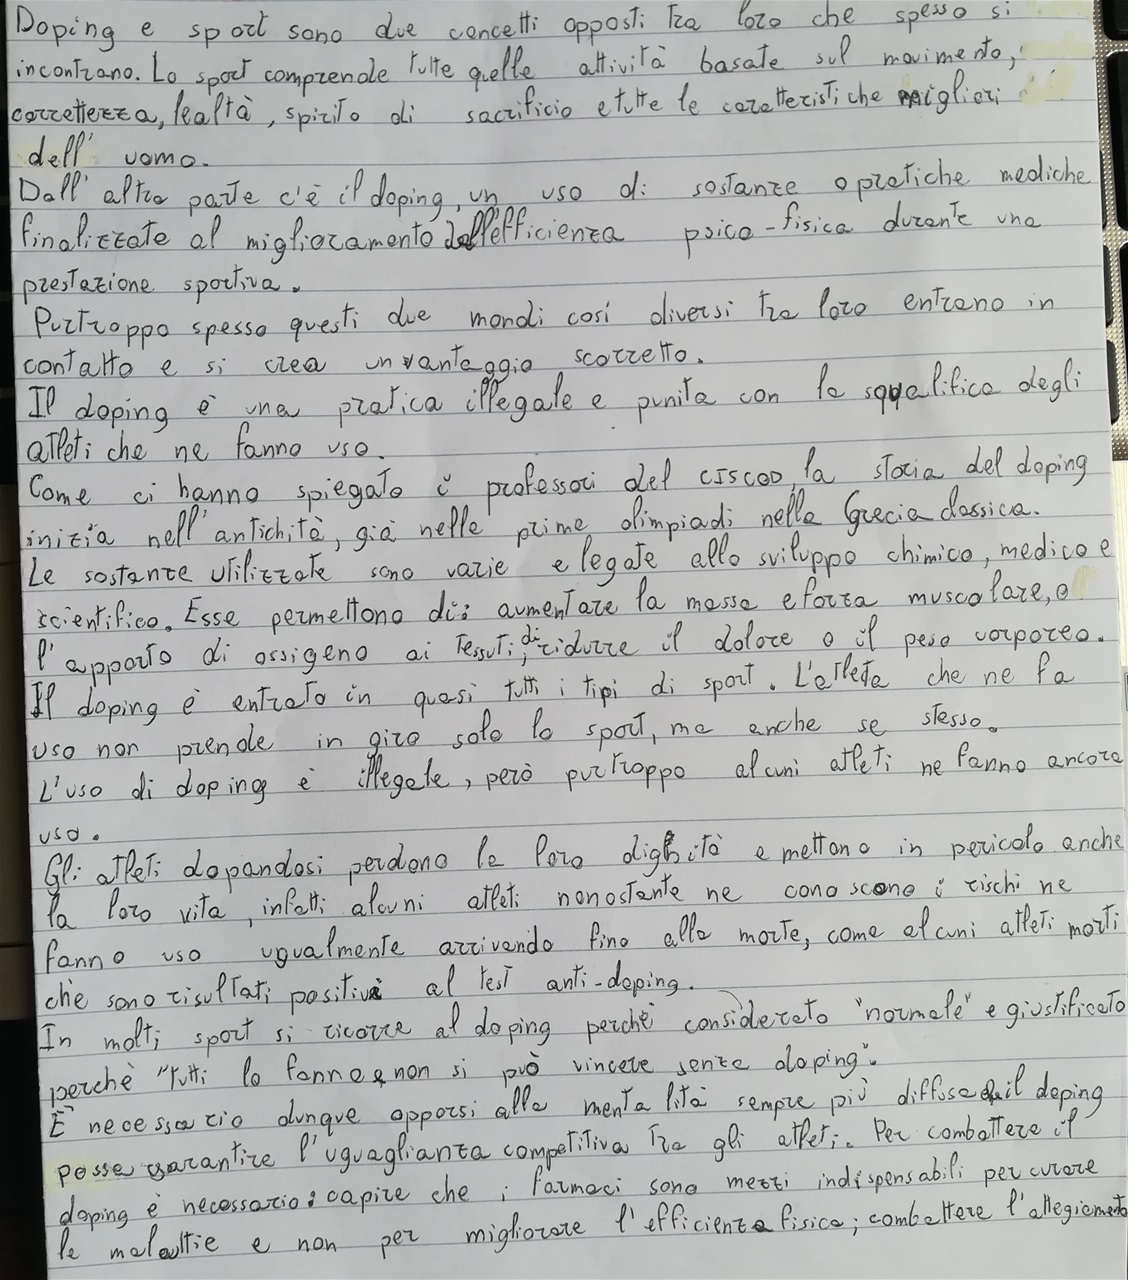 Doping e sport sono due concetti opposti tra loro che spesso si
incontrano. Lo sport comprende tutte quelle attività basate sul movimento,
correttezza, lealtà, spirito di sacrificio e tutte le caratteristiche migliori
dell'uomo.
Dall'altra parte c'è il doping, un uso di sostanze o pratiche mediche
finalizzate al miglioramento dell'efficienza psico-fisica durante una
prestazione sportiva.
Purtroppo spesso questi due mondi così diversi tra loro entrano in
contatto e si crea un vantaggio scorretto.
Il doping è una pratica illegale e punita con la squalifica degli
atleti che ne fanno uso.
Come ci hanno spiegato i professori del CISCOD, la storia del doping
inizia nell'antichità, già nelle prime olimpiadi nella Grecia classica.
Le sostanze utilizzate sono varie e legate allo sviluppo chimico, medico e
scientifico. Esse permettono di: aumentare la massa e forza muscolare, o
l'apporto di ossigeno ai tessuti; di ridurre il dolore o il peso corporeo.
Il doping è entrato in quasi tutti i tipi di sport. L'atleta che ne fa
uso non prende in giro solo lo sport, ma anche se stesso.
L'uso di doping è illegale, però purtroppo alcuni atleti ne fanno ancora
uso.
Gli atleti dopandosi perdono la loro dignità e mettono in pericolo anche
la loro vita, infatti alcuni atleti nonostante ne conoscono i rischi ne
fanno uso ugualmente arrivando fino alla morte, come alcuni atleti morti
che sono risultati positivi al test anti-doping.
In molti sport si ricorre al doping perché considerato "normale" e giustificato
perché "tutti lo fanno e non si può vincere senza doping".
È necessario dunque opporsi alla mentalità sempre più diffusa il doping
possa garantire l'uguaglianza competitiva tra gli atleti. Per combattere il
doping è necessario: capire che i farmaci sono mezzi indispensabili per curare
le malattie e non per migliorare l'efficienza fisica; combattere l'allegiamento